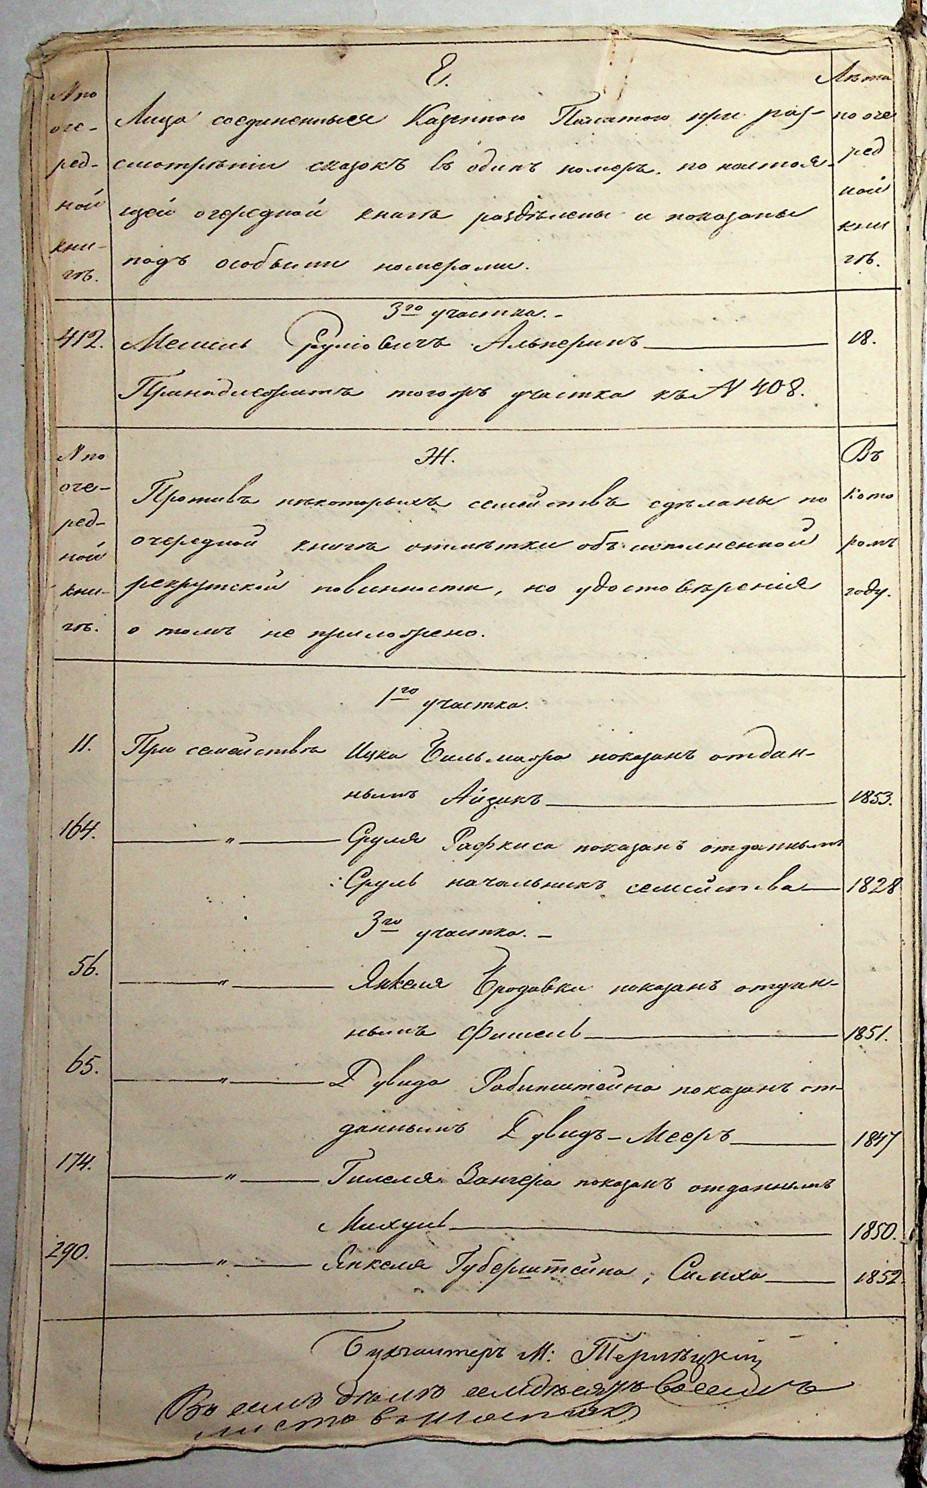 Е.
№ по очередной книгѣ.
Лѣта по очередной книгѣ.
Лица соединенныя Казенною Палатою при раз-
смотрѣніи сказокъ въ одинъ номеръ, по настоя-
щей очередной книгѣ раздѣлены и показаны
подъ особыми номерами.
3го участка.-
412. Мешель Сруліовичъ Альперинъ 18.
Принадлежитъ тогожъ участка къ № 408.
№ по очередной книгѣ.
Ж.
Въ которомъ году.
Противъ нѣкоторыхъ семействъ сдѣланы по
очередной книгѣ отмѣтки объ исполненной
рекрутской повинности, но удостовѣренія
о томъ не приложено.
1го участка.
11. При семействѣ Ицка Бильмажа показанъ отдан-
нымъ Айзикъ 1853.
164. " Сруля Рафкиса показанъ отданнымъ
Сруль начальникъ семейства 1828
3го участка.-
56. " Янкеля Бродавки показанъ отдан-
нымъ Фишель 1851.
65. " Дувида Рабинштейна показанъ от-
даннымъ Дувидъ-Мееръ 1847
174. " Гилеля Зангера показанъ отданнымъ
Михуль 1850.
290. " Янкеля Губерштейна, Симха 1852.
Бухгалтеръ М:
Въ семъ дѣлѣ семдесятъ восемь
листовъ